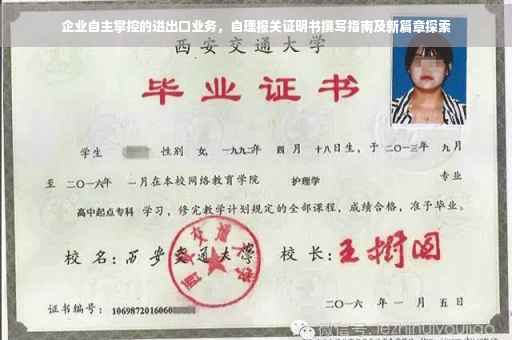 企业自主掌控的进出口业务，自理报关证明书撰写指南及新篇章探索
西安交通大学
毕业证书
学生 性别 女，一九九二年 四 月 十八日生，于 二〇一三年 九月
至 二〇一六年 一月在本校网络教育学院 护理学 专业
高中起点专科 学习，修完教学计划规定的全部课程，成绩合格，准予毕业。
校 名：西安交通大学 校 长：王树国
证书编号：1069872016060
二〇一六 年 一 月 五 日
微信号: jezhinuiyoujiao